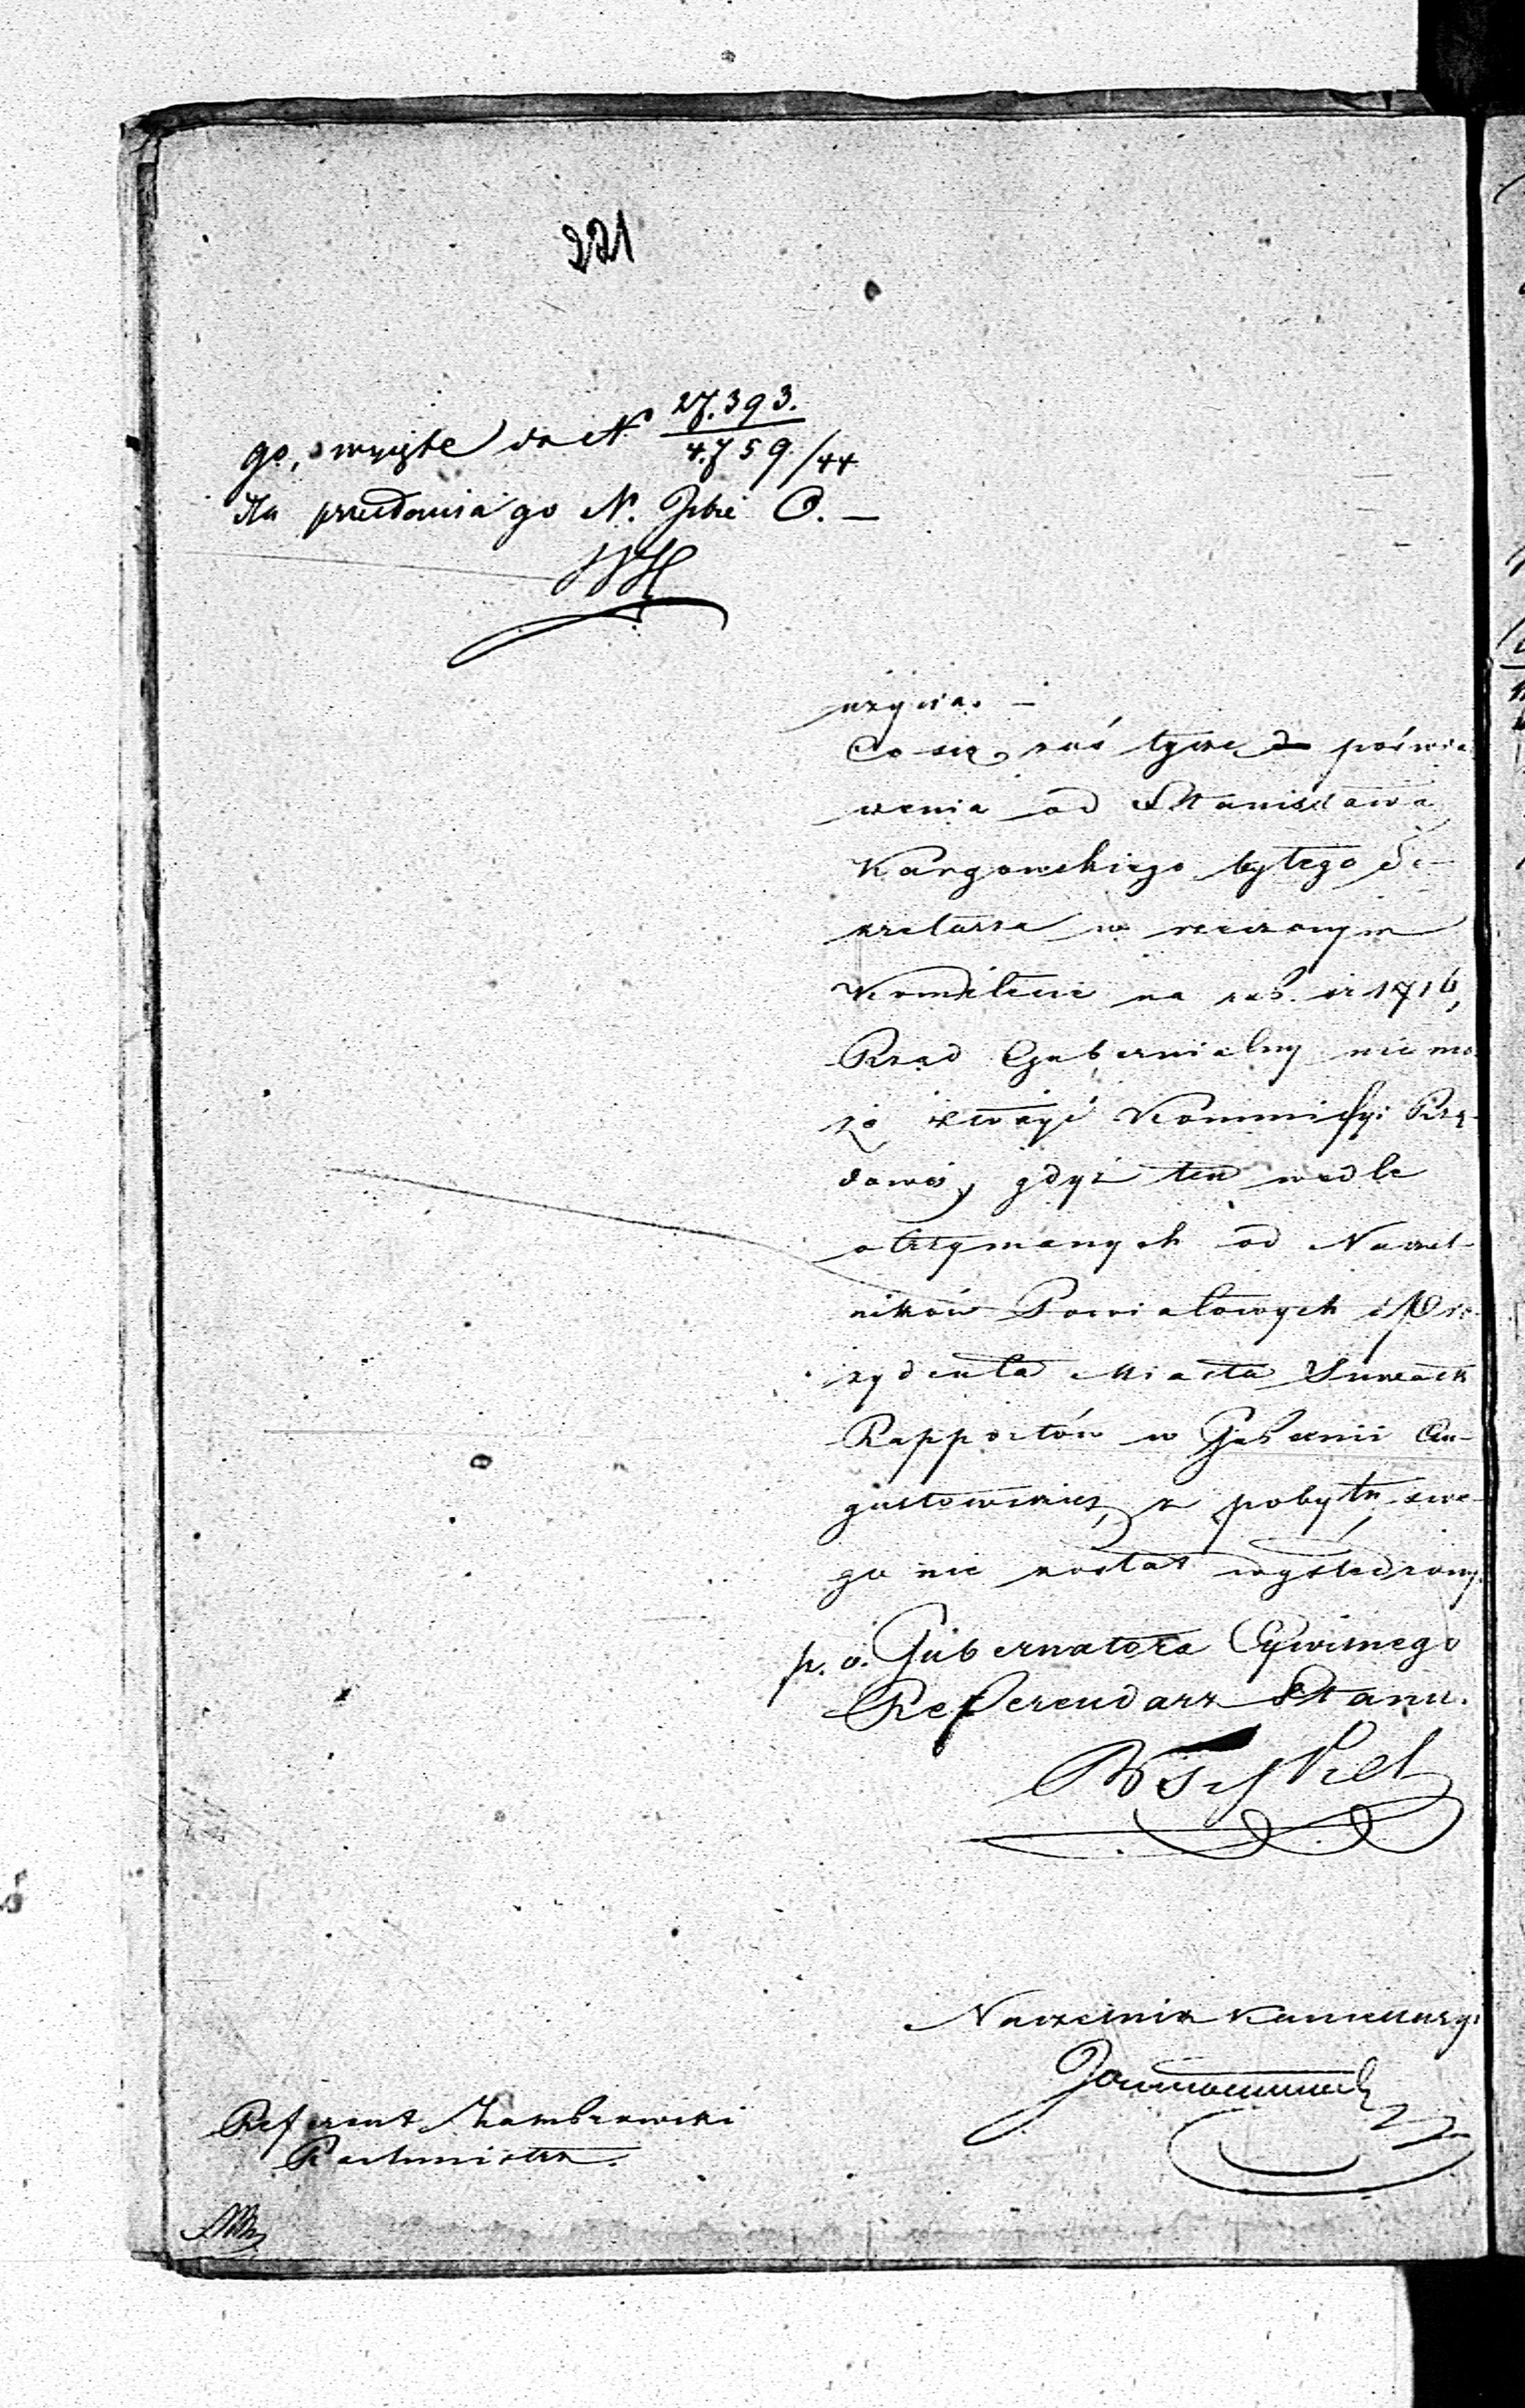 221
27.393.
go, wzięte do N 4759/44
dla przedania go N. Izbie O. —
użycia. —
Co się zaś tycze poświad
czenia od Stanisława
Kargowskiego byłego Se-
kretarza w rzeczonym
Komitecie na rub. sr 1716,
Rząd Gubernialny nie mo
że złożyć Kommissyi Rzą-
dowéj, gdyż ten wedle
otrzymanych od Naczel-
ników Powiatowych i Pre-
zydenta Miasta Suwałk
Rapportów w Gubernii Au-
gustowskiéj, z pobytu swe-
go nie został wyśledzony.
p. o. Gubernatora Cywilnego
Referendarz Stanu.
Naczelnik Kancellaryi
Referent Zambrzowski
Rachmistrz.